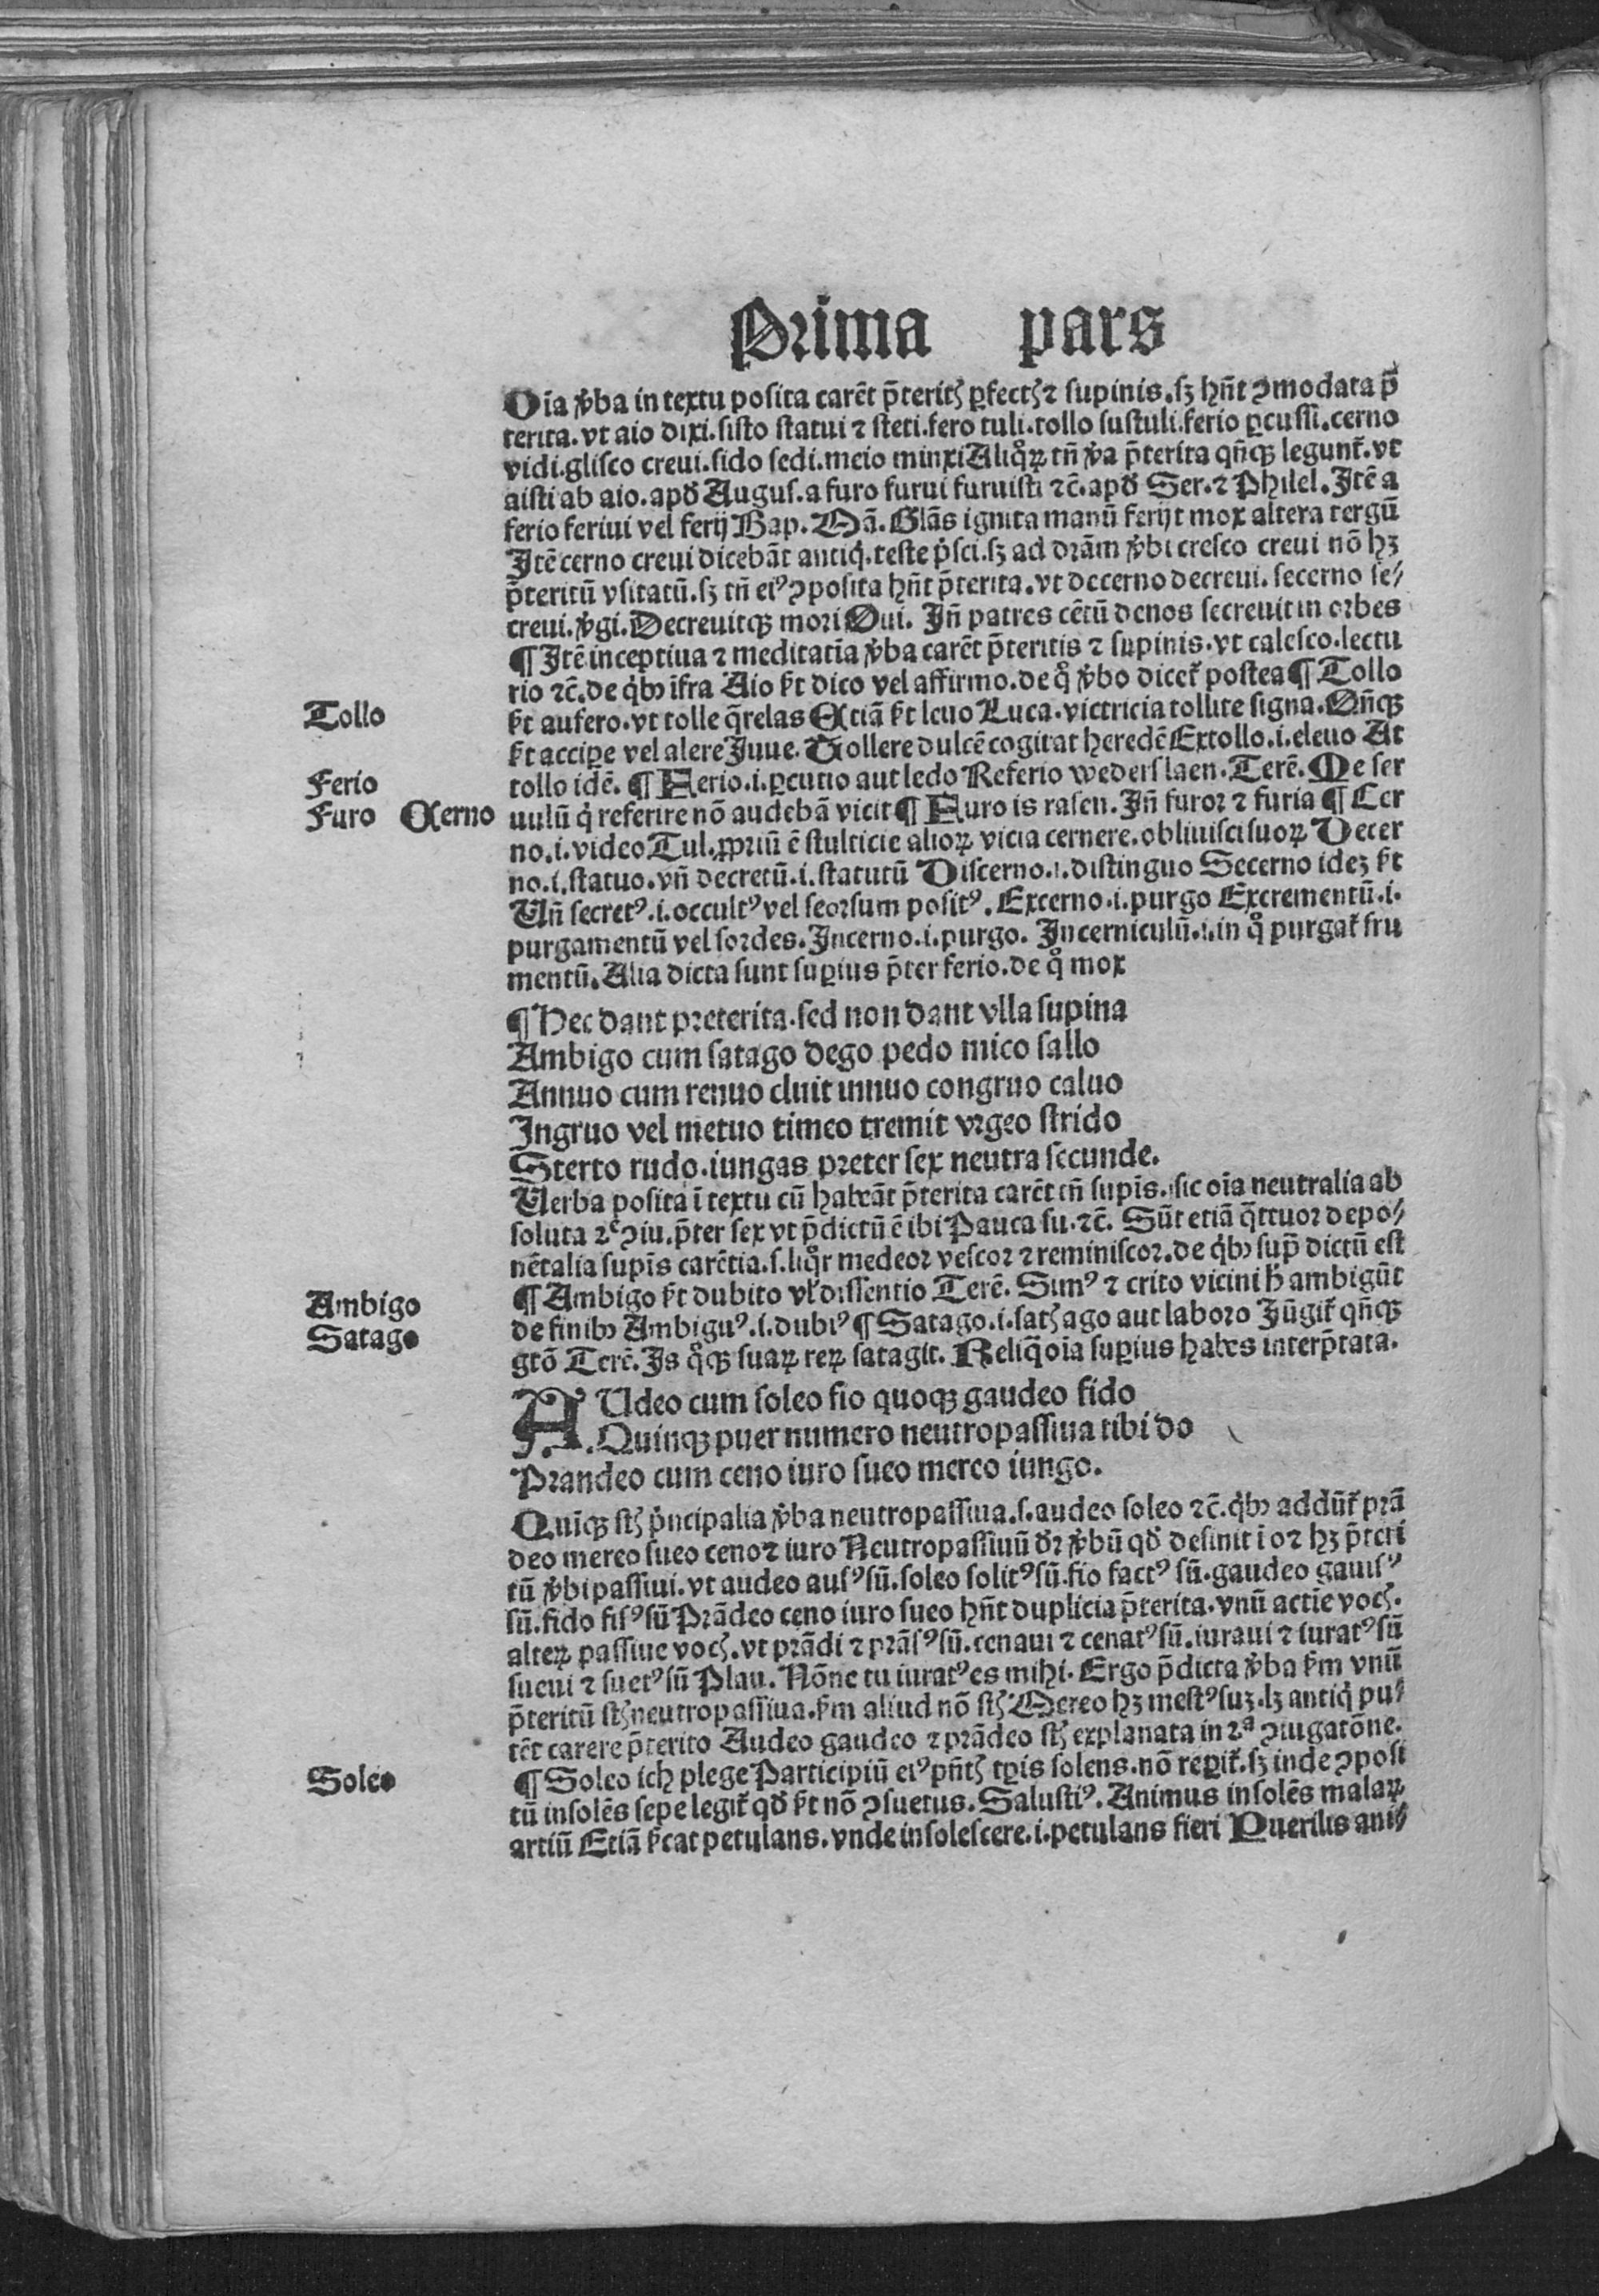 Prima pars
Oīa v̄ba in textu posita carēt p̄teritꝭ ꝑfectꝭ ⁊ supinis. sꝫ hn̄t ↄmodata p̄
terita. vt aio dixi. sisto statui ⁊ steti. fero tuli. tollo sustuli. ferio ꝑcussi. cerno
vidi. glisco creui. sido sedi. meio minxi Aliqͦꝝ tn̄ v̄a p̄terita qn̄qꝫ legunt᷑. vt
aisti ab aio. apd̄ Augus. a furo furui furuisti ⁊c̄. apd̄ Ser. ⁊ Philel. Itē a
ferio feriui vel ferij Bap. Mā. Glās ignita manū ferijt mox altera tergū
Itē cerno creui dicebāt antiqͥ. teste pͥsci. sꝫ ad drām v̄bi cresco creui nō hꝫ
p̄teritū vsitatū. sꝫ tn̄ eiꝰ ↄposita hn̄t p̄terita. vt decerno decreui. secerno se/
creui. v̄gi. Decreuitqꝫ mori Oui. In̄ patres cētū denos secreuit in orbes
¶ Itē inceptiua ⁊ meditatīa v̄ba carēt p̄teritis ⁊ supinis. vt calesco. lectu
rio ⁊c̄. de qͥbꝫ īfra Aio st̄ dico vel affirmo. de qͦ v̄bo dicet᷑ postea ¶ Tollo
Tollo
st̄ aufero. vt tolle q̄relas Etiā st̄ leuo Luca. victricia tollite signa. Qn̄qꝫ
st̄ accipe vel alere Juue. Tollere dulcē cogitat heredē Extollo. i. eleuo At
Ferio
tollo idē. ¶ Ferio. i. ꝑcutio aut ledo Referio weders laen. Terē. Me ser
Furo Cerno
uulū qͥ referire nō audebā vicit ¶ Furo is rasen. In̄ furor ⁊ furia ¶ Cer
no. i. video Tul. ꝓpriū ē stulticie alioꝝ vicia cernere. obliuisci suoꝝ Decer
no. i. statuo. vn̄ decretū. i. statutū Discerno. i. distinguo Secerno ideꝫ st̄
Un̄ secretꝰ. i. occultꝰ vel seorsum positꝰ. Excerno. i. purgo Excrementū. i.
purgamentū vel sordes. Incerno. i. purgo. Incerniculū. i. in qͦ purgat᷑ fru
mentū. Alia dicta sunt suꝑius p̄ter ferio. de qͦ mox
¶ Hec dant preterita. sed non dant vlla supina
Ambigo cum satago dego pedo mico sallo
Annuo cum renuo cluit innuo congruo caluo
Ingruo vel metuo timeo tremit vrgeo strido
Sterto rudo. iungas preter sex neutra secunde.
Uerba posita ī textu cū habeāt p̄terita carēt tn̄ supīs. sic oīa neutralia ab
soluta ⁊ᵉ ↄiu. p̄ter sex vt p̄dictū ē ibi Pauca su. ⁊c̄. Sūt etiā q̄ttuor depo/
nētalia supīs carētia. s. liqͦr medeor vescor ⁊ reminiscor. de qͥbꝫ sup̄ dictū est
Ambigo
¶ Ambigo st̄ dubito vl̄ dissentio Terē. Simꝰ ⁊ crito vicini h̄ ambigūt
Satago
de finibꝫ Ambiguꝰ. i. dubiꝰ ¶ Satago. i. satꝭ ago aut laboro Jūgit᷑ qn̄qꝫ
gtō Terē. Is qͦqꝫ suaꝝ reꝝ satagit. Reliq̄ oīa suꝑius habes interp̄tata.
AUdeo cum soleo fio quoqꝫ gaudeo fido
Quinqꝫ puer numero neutropassiua tibi do
Prandeo cum ceno iuro sueo mereo iungo.
Quīqꝫ stꝭ pͥncipalia v̄ba neutropassiua. s. audeo soleo ⁊c̄. qͥbꝫ addūt᷑ prā
deo mereo sueo ceno ⁊ iuro Neutropassiuū dr̄ v̄bū qd̄ desinit ī o ⁊ hꝫ p̄teri
tū v̄bi passiui. vt audeo ausꝰ sū. soleo solitꝰ sū. fio factꝰ sū. gaudeo gauisꝰ
sū. fido fisꝰ sū Prādeo ceno iuro sueo hn̄t duplicia p̄terita. vnū actīe vocꝭ.
alteꝝ passiue vocꝭ. vt prādi ⁊ prāsꝰ sū. cenaui ⁊ cenatꝰ sū. iuraui ⁊ iuratꝰ sū
sueui ⁊ suetꝰ sū Plau. Nōne tu iuratꝰ es mihi. Ergo p̄dicta v̄ba sm̄ vnū
p̄teritū stꝭ neutropassiua. sm̄ aliud nō stꝭ Mereo hꝫ mestꝰ suꝫ. lꝫ antiqͥ pu/
tēt carere p̄terito Audeo gaudeo ⁊ prādeo stꝭ explanata in ⁊ᵃ ↄiugatōne.
Soleo
¶ Soleo ich plege Participiū eiꝰ pn̄tꝭ tꝑis solens. nō reꝑit᷑. sꝫ inde ↄposi
tū insolēs sepe legit᷑ qd̄ st̄ nō ↄsuetus. Salustiꝰ. Animus insolēs malaꝝ
artiū Etiā st̄cat petulans. vnde insolescere. i. petulans fieri Puerilis ani/